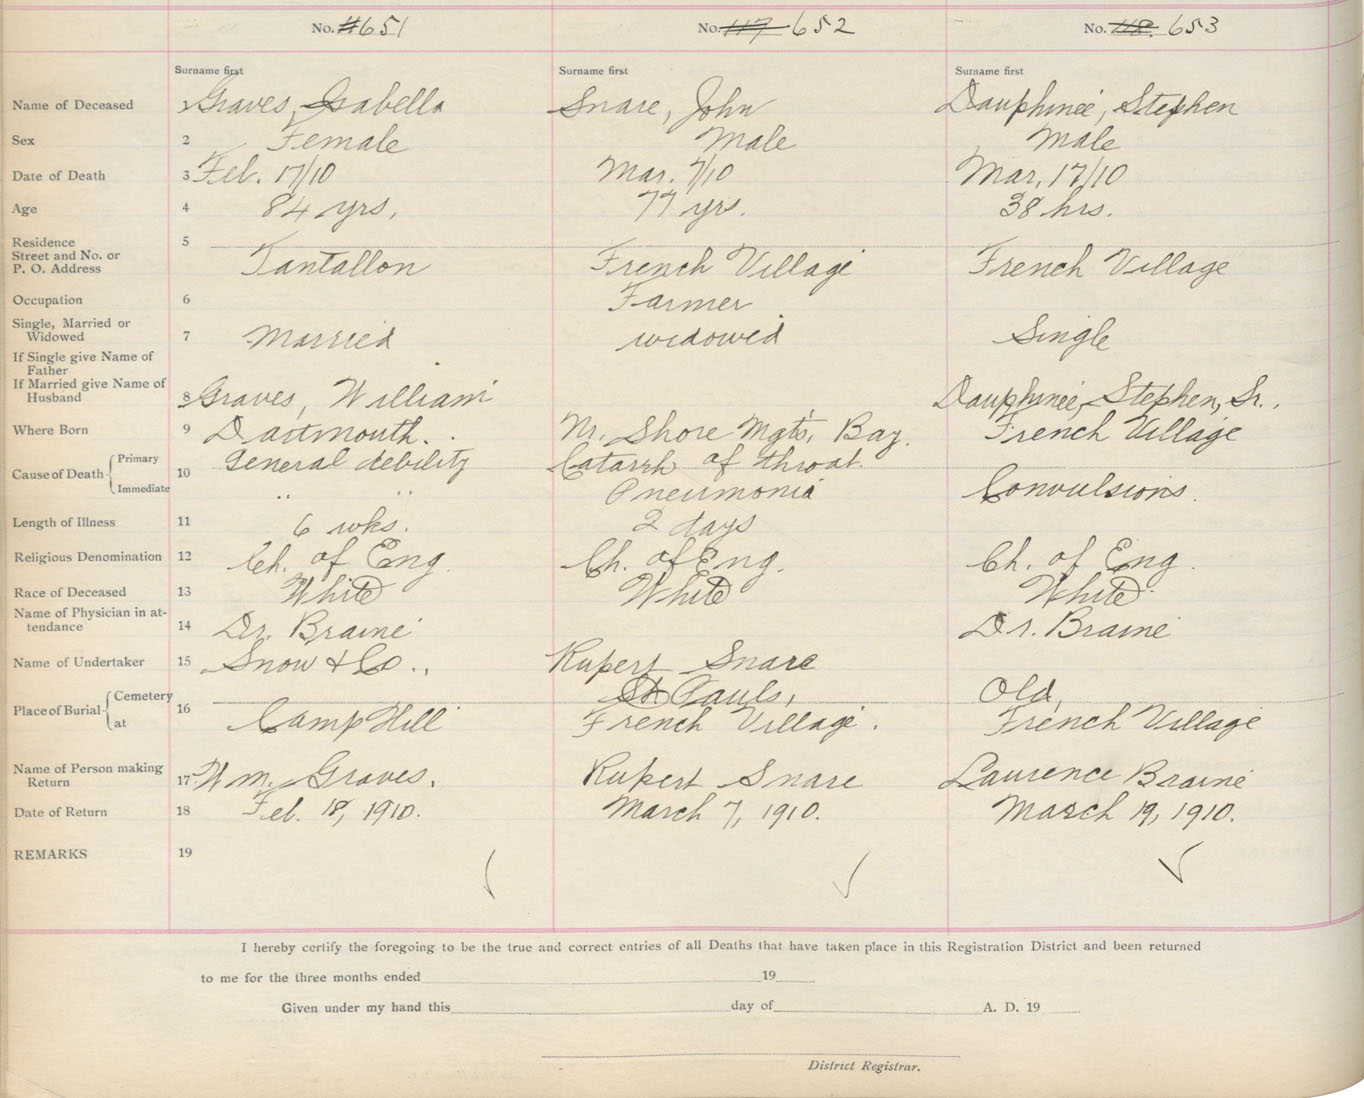 No. #651 No. 117 652 No. 118. 653
Surname first Surname first Surname first
Name of Deceased 1 Graves, Isabella Snare, John Dauphinee, Stephen
Sex 2 Female Male Male
Date of Death 3 Feb. 17/10 Mar. 7/10 Mar. 17/10
Age 4 84 yrs. 77 yrs. 38 hrs.
Residence 5
Street and No. or
P. O. Address Tantallon French Village French Village
Occupation 6 Farmer
Single, Married or
Widowed 7 Married widowed Single
If Single give Name of
Father
If Married give Name of
Husband 8 Graves, William Dauphinee, Stephen, Sr.
Where Born 9 Dartmouth. Nr. Shore Mgts. Bay. French Village
Cause of Death Primary 10 General debility Catarrh of throat.
Immediate " " Pneumonia Convulsions.
Length of Illness 11 6 wks. 2 days
Religious Denomination 12 Ch. of Eng. Ch. of Eng. Ch. of Eng.
Race of Deceased 13 White White White
Name of Physician in at-
tendance 14 Dr. Braine Dr. Braine
Name of Undertaker 15 Snow & Co., Rupert Snare
Place of Burial Cemetery 16 St Pauls, Old,
at Camp Hill French Village. French Village
Name of Person making
Return 17 Wm. Graves. Rupert Snare Laurence Braine
Date of Return 18 Feb. 18, 1910. March 7, 1910. March 19, 1910.
REMARKS 19
I hereby certify the foregoing to be the true and correct entries of all Deaths that have taken place in this Registration District and been returned
to me for the three months ended 19
Given under my hand this day of A. D. 19
District Registrar.